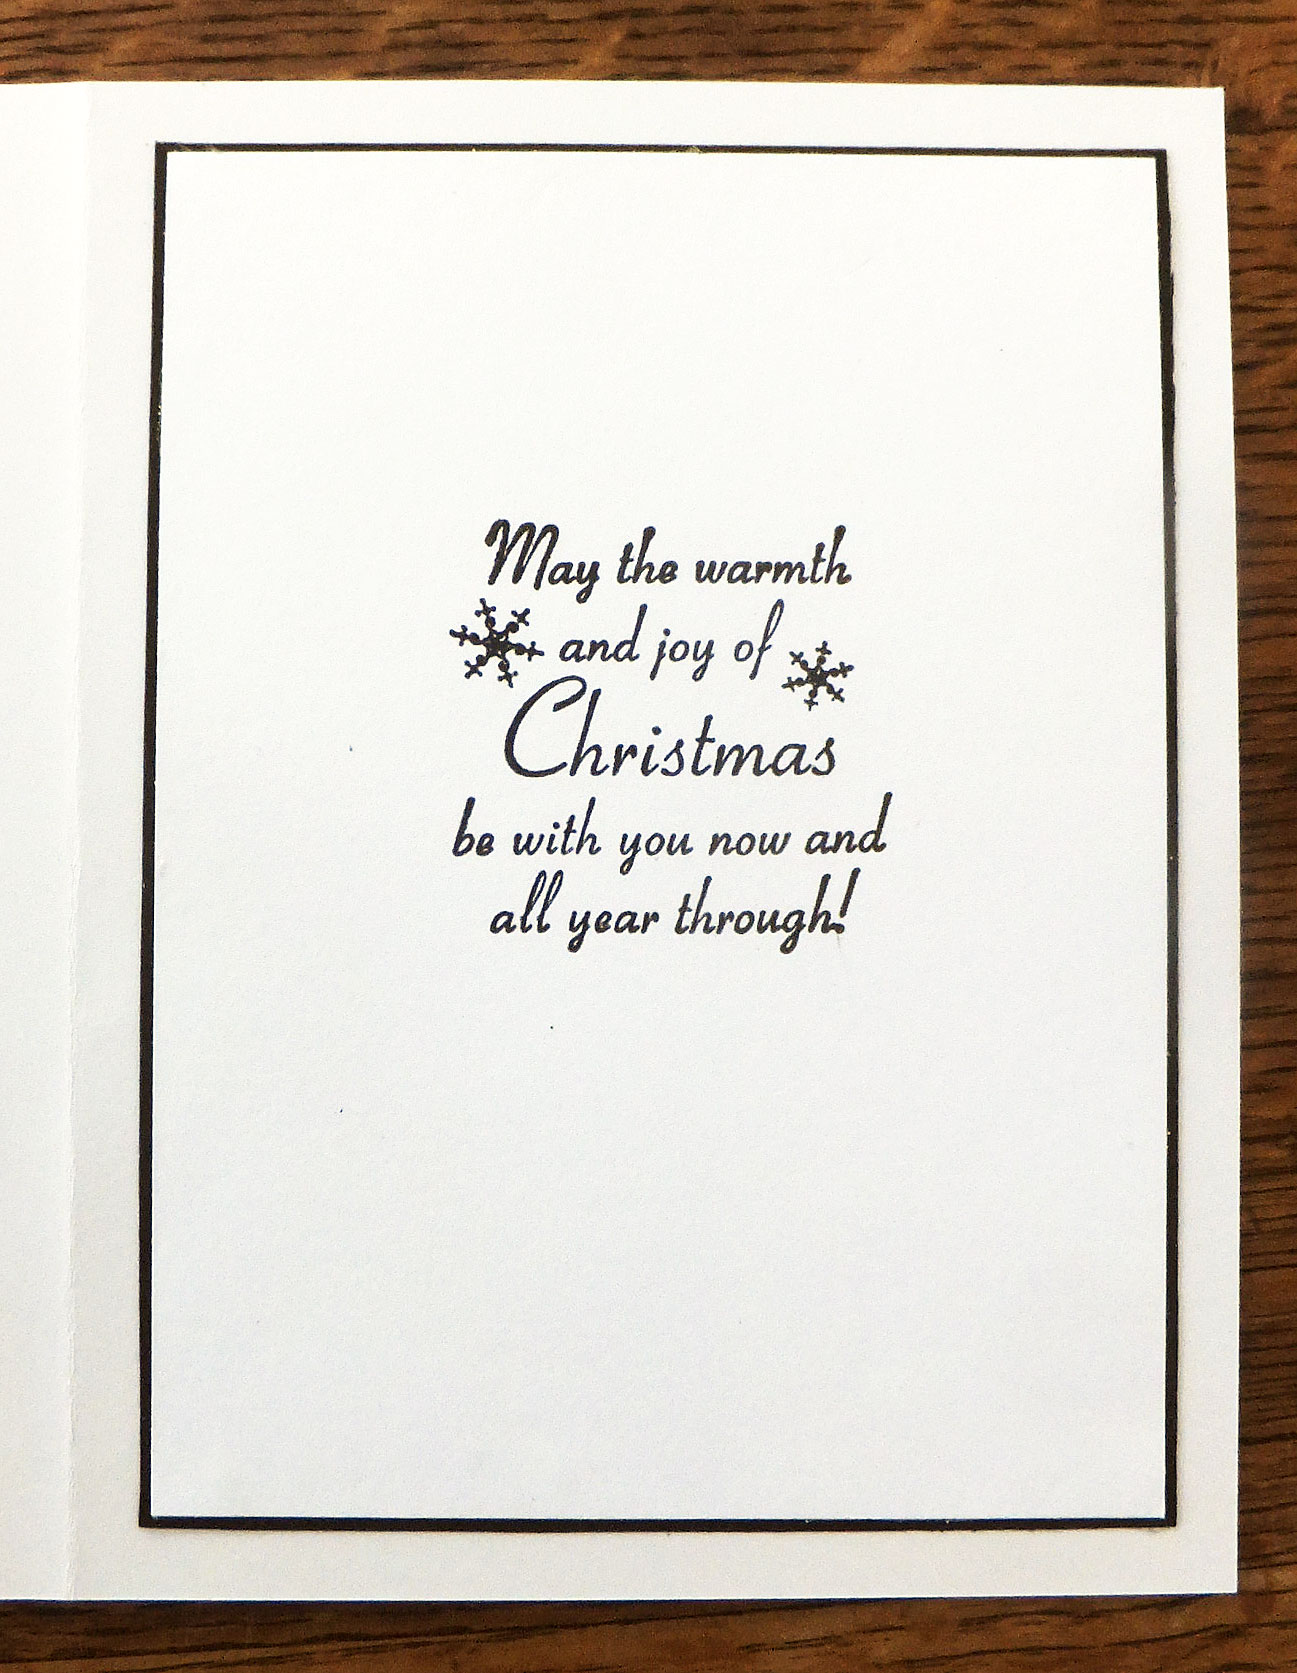 May the warmth
and joy of
Christmas
be with you now and
all year through!